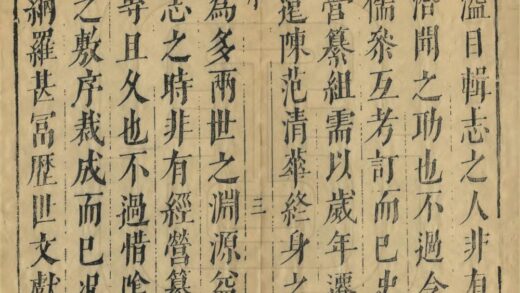 溢目輯志之人非有
洽聞之功也不過
儒叅互考訂而已史
營纂組需以歲年
陳范清華終身之
三
為多兩世之淵源
志之時非有經營纂
等且久也不過惜
之敷序裁成而已况
網羅甚富歷世文獻